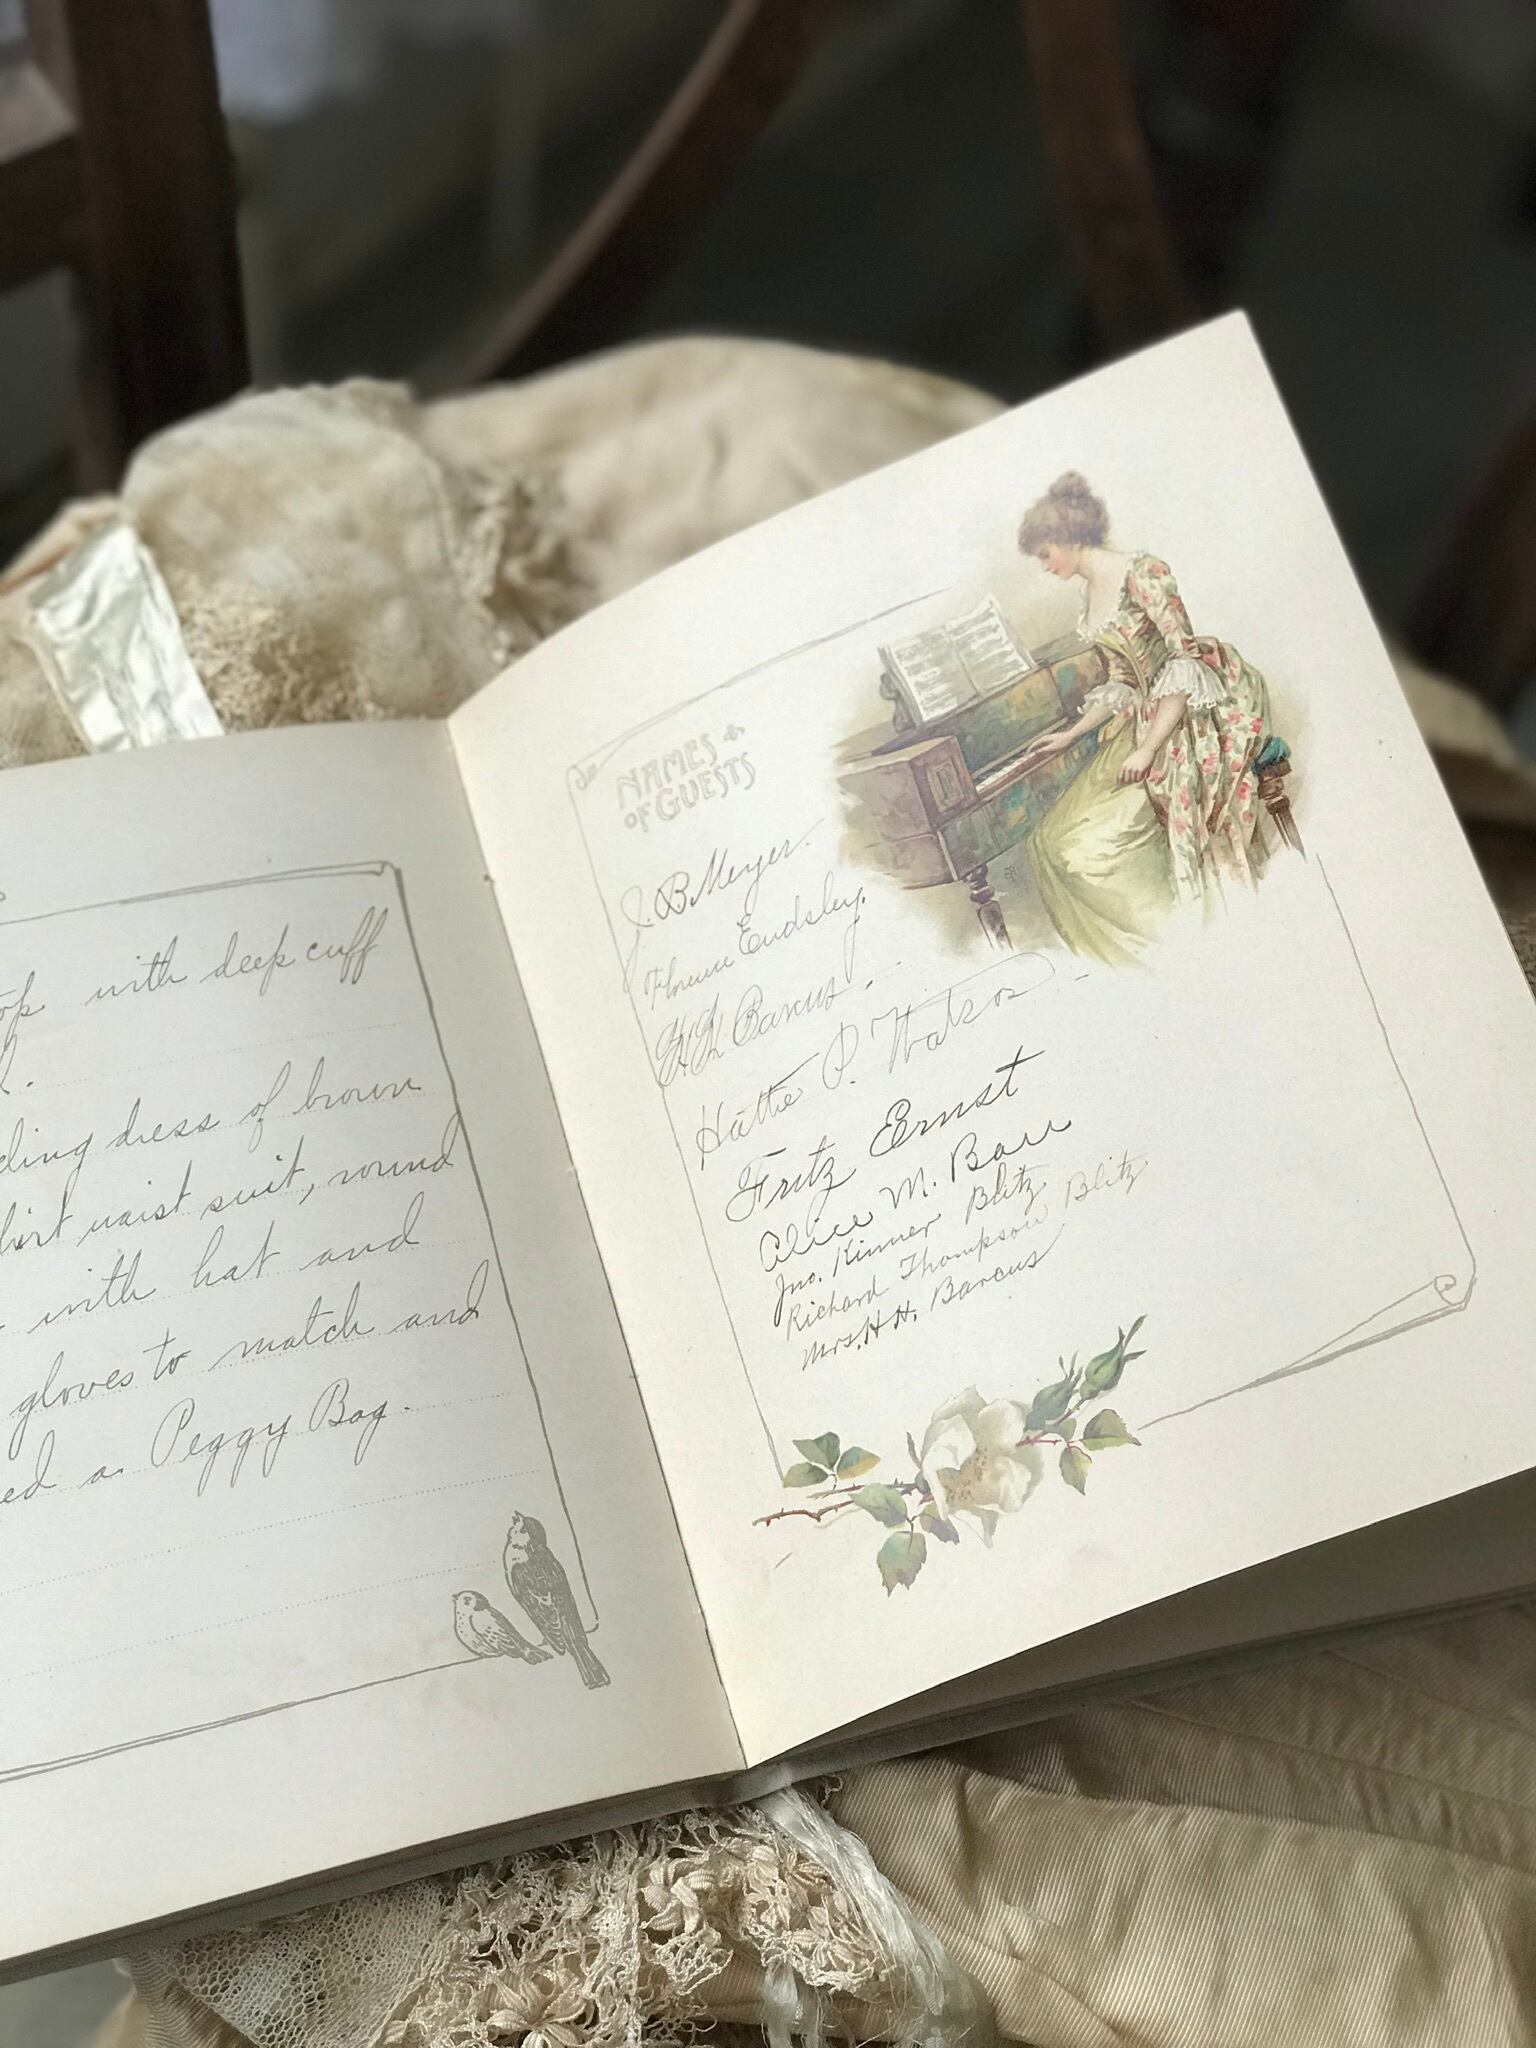 with deep cuff
dress of brown
waist suit, round
with hat and
gloves to match and
a Peggy Bag.
NAMES
OF GUESTS
J. B. Meyer.
Florence Endsley.
H. H. Barcus.
Hattie P. Watson
Fritz Ernst
Alice M. Barr
Jno. Kinner Blitz
Richard Thompson Blitz
Mrs. H. H. Barcus